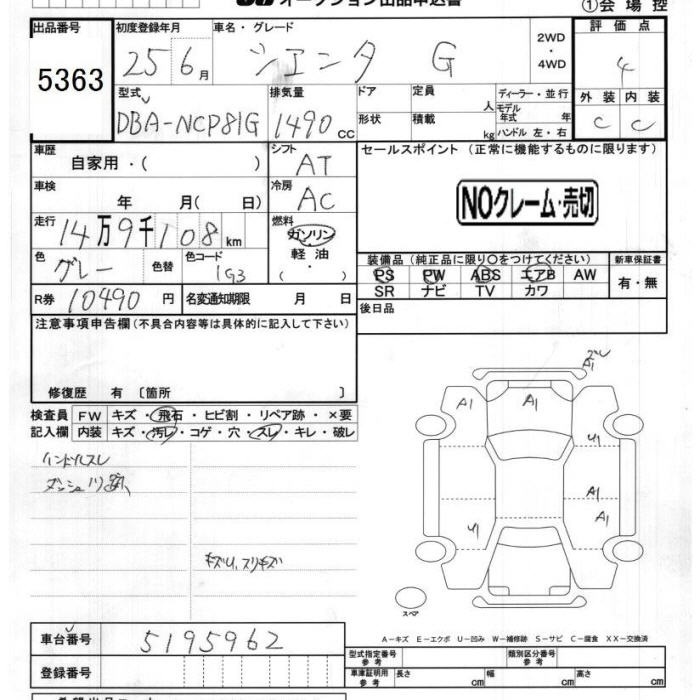 オークション出品申込書
①会場控
出品番号 初度登録年月 車名・グレード 2WD ・ 4WD 評価点
5363 25 6月 シエンタ G 4
型式 排気量 ドア 定員 人 ディーラー・並行 外装 内装
DBA-NCP81G 1490 CC 形状 積載 kg モデル年式 年 C C
ハンドル 左・右
車歴 自家用・( ) シフト AT セールスポイント (正常に機能するものに限ります)
車検 年 月( 日) 冷房 AC NOクレーム・売切
走行 14万9千108km 燃料 ガソリン
軽油
・
( )
色 グレー 色替 色コード 1G3
装備品(純正品に限り○をつけてください) 新車保証書
PS PW ABS エアB AW 有・無
SR ナビ TV カワ
R券 10490円 名変通知期限 月 日 後日品
注意事項申告欄(不具合内容等は具体的に記入して下さい)
修復歴 有 〔箇所 〕
検査員 FW キズ・飛石・ヒビ割・リペア跡・×要
記入欄 内装 キズ・汚レ・コゲ・穴・スレ・キレ・破レ
ハンドルスレ
キズU、スリキズ
ズレ
A1
A1
A1
U1
A1
A1
U1
スペア
A−キズ E−エクボ U−凹み W−補修跡 S−サビ C−腐食 XX−交換済
車台番号 5195962
型式指定番号 参考 類別区分番号 参考
登録番号 車庫証明用 参考 長さ cm 幅 cm 高さ cm